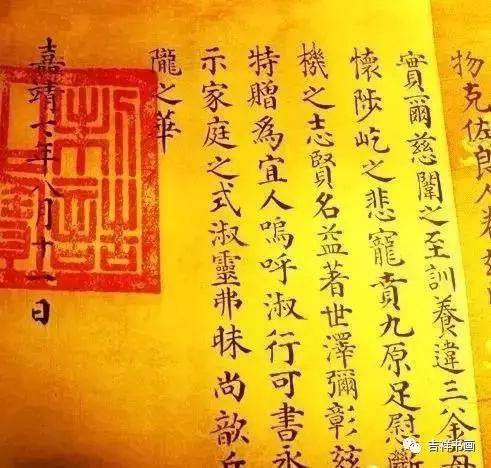 物克佐良人
實爾慈闈之至訓養違三釜每
懷陟屺之悲寵賁九原足慰斷
機之志賢名益著世澤彌彰茲
特贈為宜人嗚呼淑行可書永
示家庭之式淑靈弗昧尚歆丘
隴之華
嘉靖七年八月十一日
吉祥书画